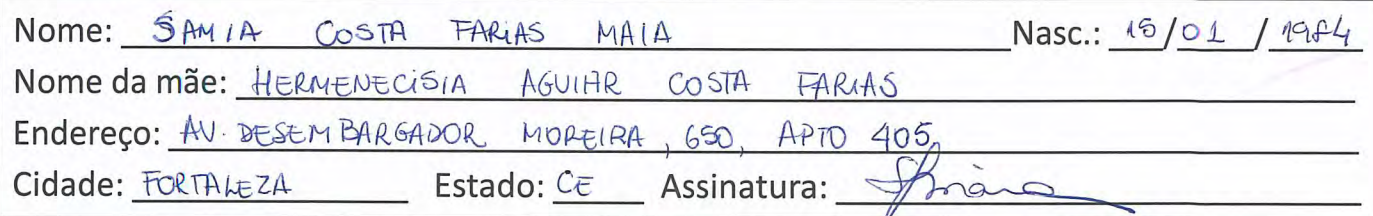 Nome: SÂMIA COSTA FARIAS MAIA Nasc.: 15/01/1984
Nome da mãe: HERMENECISIA AGUIAR COSTA FARIAS
Endereço: AV. DESEMBARGADOR MOREIRA, 650, APTO 405,
Cidade: FORTALEZA Estado: CE Assinatura: